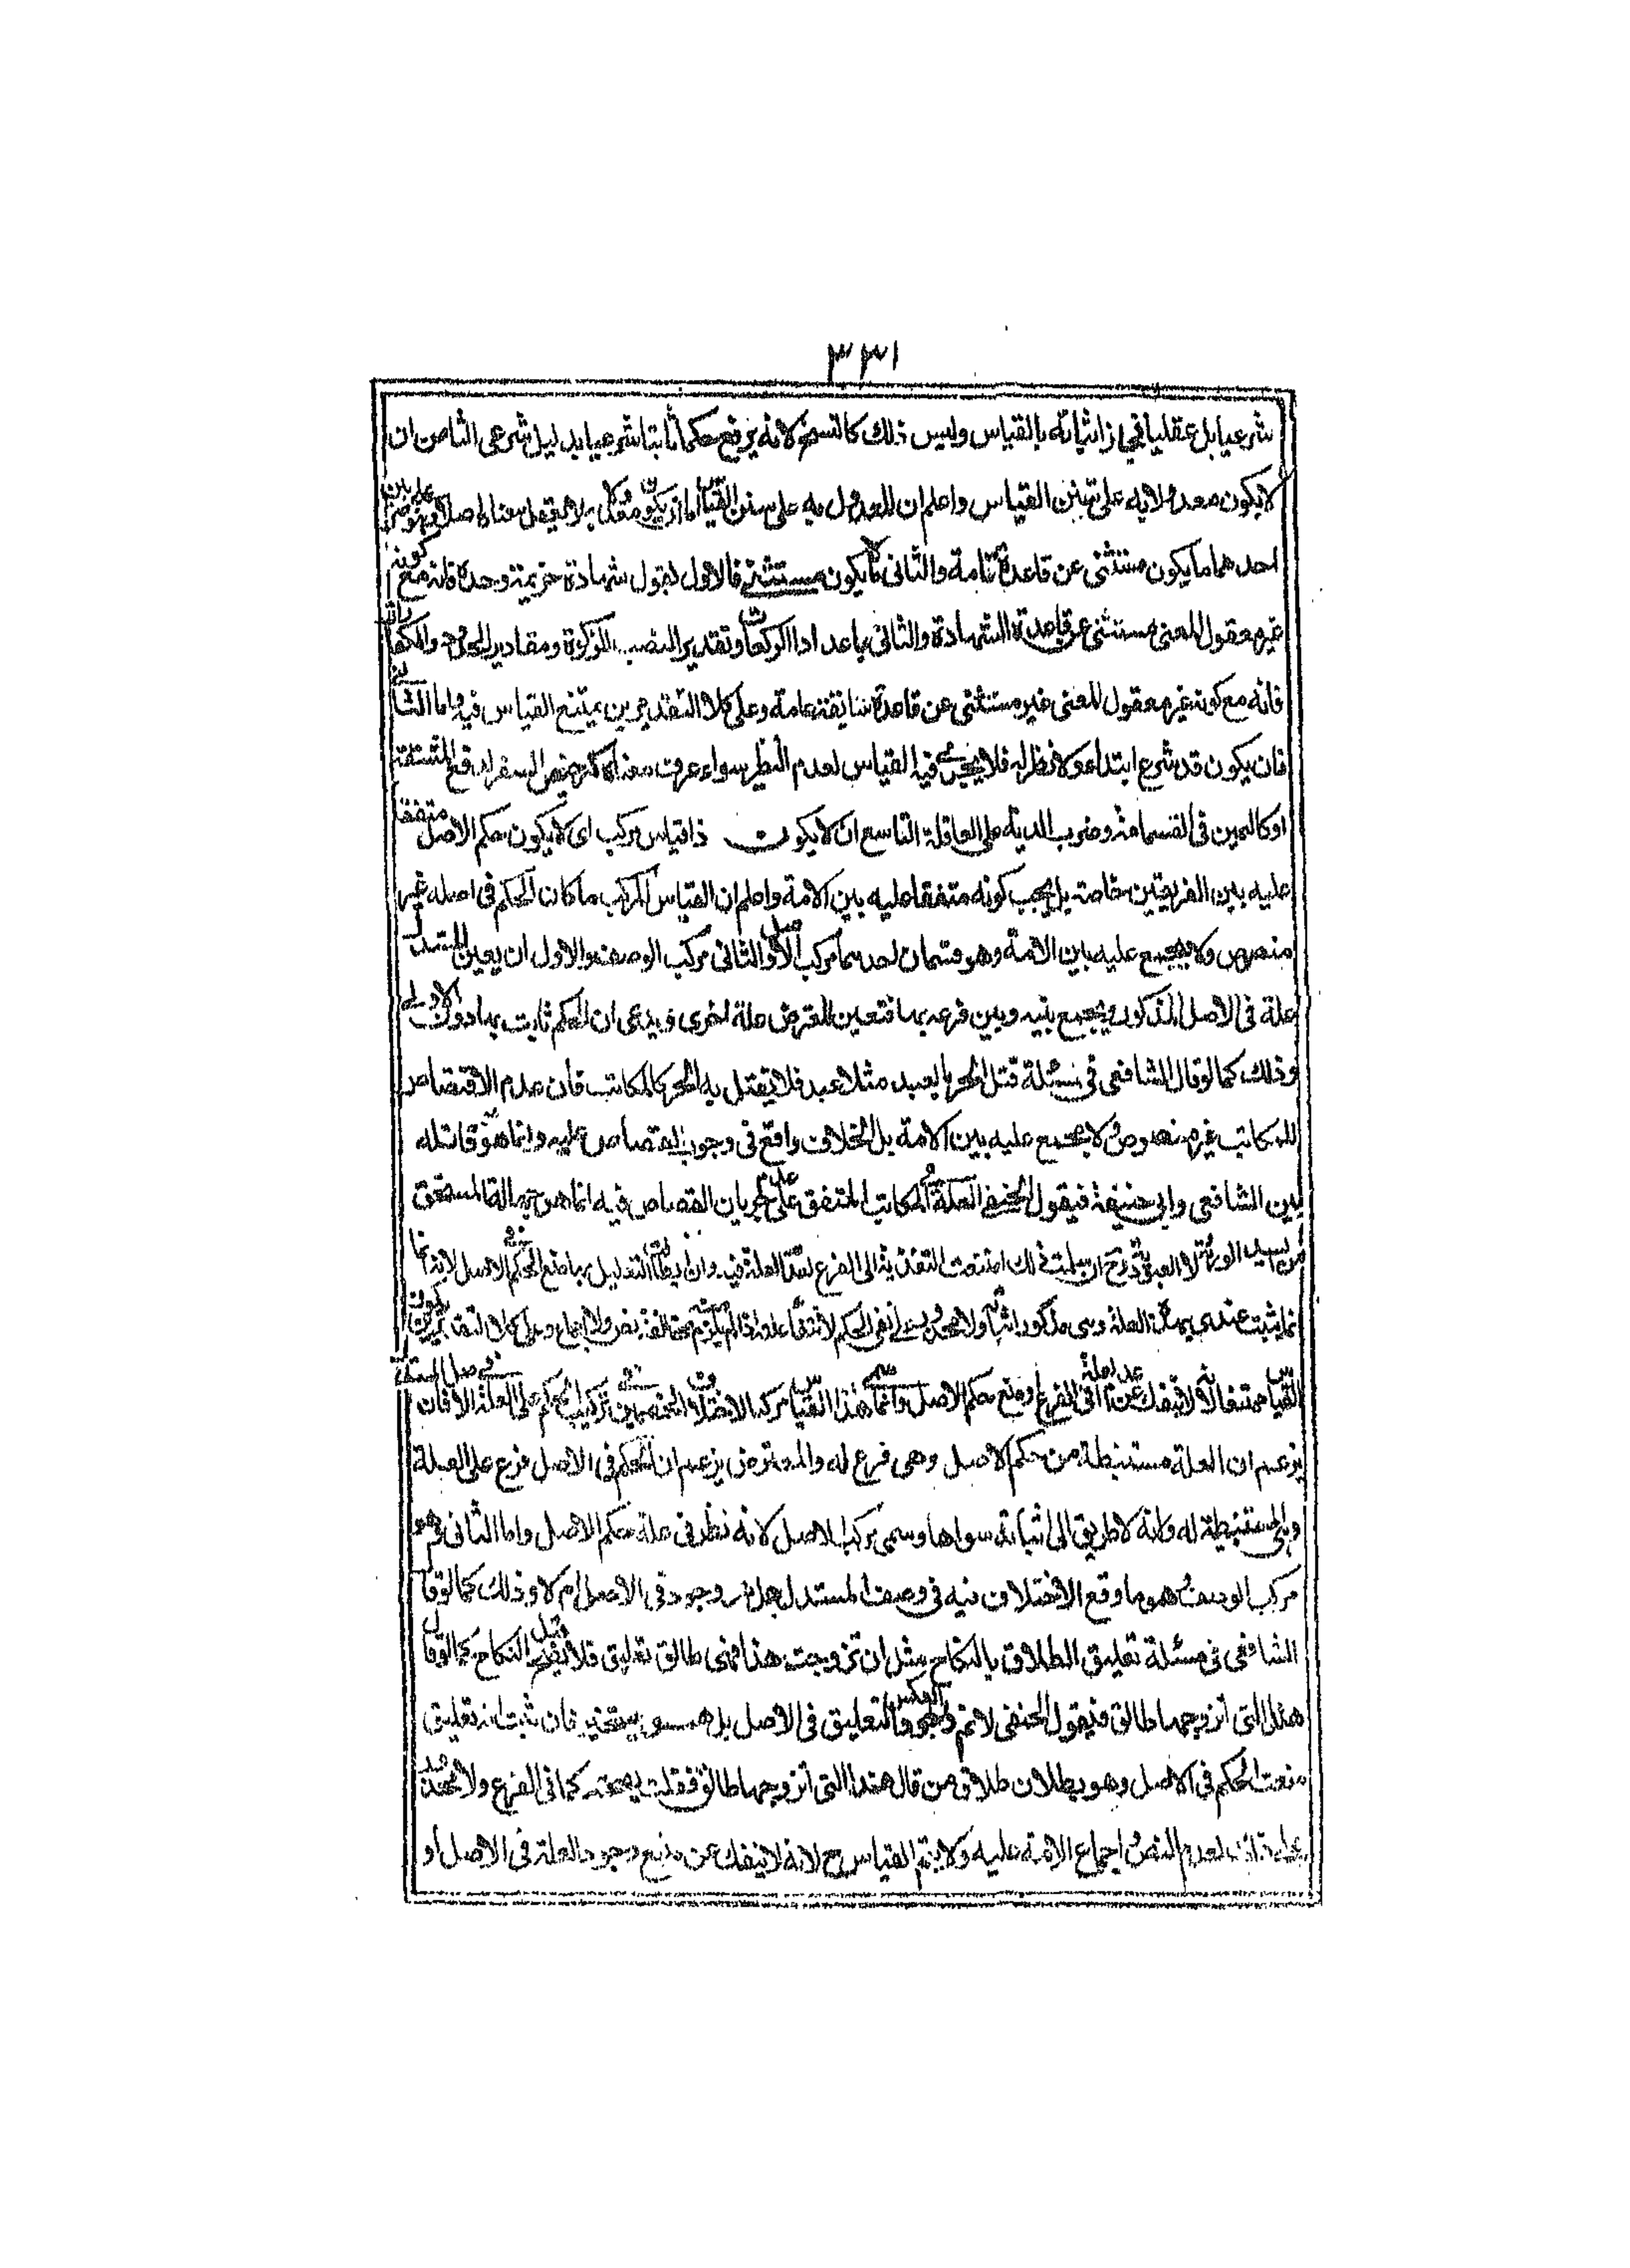 ٣٣١
شرعيا بل عقليا فيجاز اثباته بالقياس وليس ذلك كالنسخ لانه يرفع حكما ثابتا شرعيا بدليل شرعي الثامن ان
لا يكون معدولا به على سنن القياس واعلم ان المعدول به على سنن القياس اما ان يكون معقولا لا يعقل معناه اصلا وهو ضربان
احدهما ما يكون مستثنى عن قاعدة تامة والثاني لا يكون مستثنى فالاول كقبول شهادة خزيمة وحده فانه مع كونه
غير معقول المعنى مستثنى عن قاعدة الشهادة والثاني كاعداد الركعات وتقدير النصب الزكوة ومقادير الحدود والكفارات
فانه مع كونه غير معقول المعنى غير مستثنى عن قاعدة سابقة عامة وعلى كلا التقديرين يمتنع القياس فيه واما الثاني
فان يكون قد شرع ابتداء ولا نظير له فلا يجري فيه القياس لعدم النظير سواء عرفت معناه كترخيص السفر لدفع المشقة
او كاليمين في القسامة وضرب الدية على العاقلة التاسع ان لا يكون ذا قياس مركب اي لا يكون حكم الاصل متفقا
عليه بين الفريقين خاصة بل يجب كونه متفقا عليه بين الامة واعلم ان القياس المركب ما كان الحكم في اصله غير
منصوص ولا مجمع عليه بين الامة وهو قسمان احدهما مركب الاصل والثاني مركب الوصف والاول ان يعين المستدل
علة في الاصل المذكور ويجمع بينه وبين فرعه بها فتعين المعترض علة اخرى ويدعي ان الحكم ثابت بها دون الاولى
وذلك كما لو قال الشافعي في مسئلة قتل الحر بالعبد مثلا عبد فلا يقتل به الحر كالمكاتب فان عدم الاقتصاص
للمكاتب غير منصوص ولا مجمع عليه بين الامة بل الخلاف واقع في وجوب القصاص عليه وانما هو قاتله
بين الشافعي وابي حنيفة فيقول الحنفي العلة في المكاتب المتفق على عدم جريان القصاص فيه انما هي جهالة المستحق
من السيد الورثة لا العبودية ان سلمت ذلك امتنعت التعدية الى الفرع العلة فيه وان بطل التعليل بها منع الحكم في الاصل لانه انما
انما ثبت عندي بهذه العلة وهي مذكور اثباتا ولا محذور في نفي الحكم لانتفاء علته اذ لم يلزم مخالفة نص ولا اجماع وعلى كلا التقديرين يكون
القياس ممتنعا لانه لا ينفك عن عدم العلة في الفرع او منع حكم الاصل وانما سمي هذا القياس مركبا لاختلاف الخصمين في تركيب الحكم على العلة في اصل المستدل فان
يزعم ان العلة مستنبطة من حكم الاصل وهي فرع له والمعترض يزعم ان الحكم في الاصل فرع على العلة
وهي المستنبطة له وانه لا طريق الى اثباته سواها وسمي مركب الاصل لانه نظر في علة حكم الاصل واما الثاني وهو
مركب الوصف فهو ما وقع الاختلاف فيه في وصف المستدل هل له وجود في الاصل ام لا وذلك كما لو قال
الشافعي في مسئلة تعليق الطلاق بالنكاح مثل ان تزوجت هندا فهي طالق تعليق فلا يصح قبل النكاح كما لو قال
هند التي اتزوجها طالق فيقول الحنفي لا نم وجود التعليق في الاصل بل هو تنجيز فان ثبت انه تعليق
منعت الحكم في الاصل وهو بطلان طلاق من قال هند التي اتزوجها طالق فقلت بصحته كما في الفرع ولا محذور
لعدم النص واجماع الامة عليه ولا يتم القياس ح لانه لا ينفك عن منع وجود العلة في الاصل او